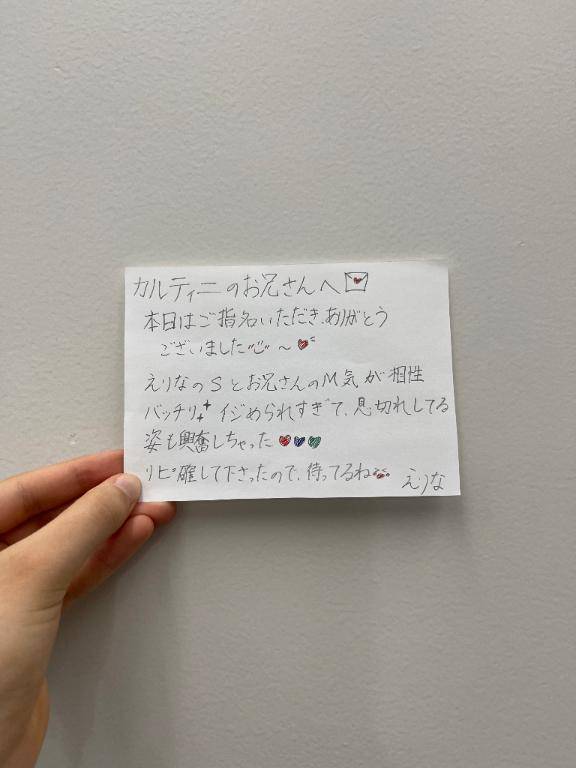 カルティニのお兄さんへ
本日はご指名いただき、ありがとう
ございました〜
えりなのSとお兄さんのM気が相性
バッチリ イジめられすぎて、息切れしてる
姿も興奮しちゃった
リピ確して下さったので、待ってるね
えりな